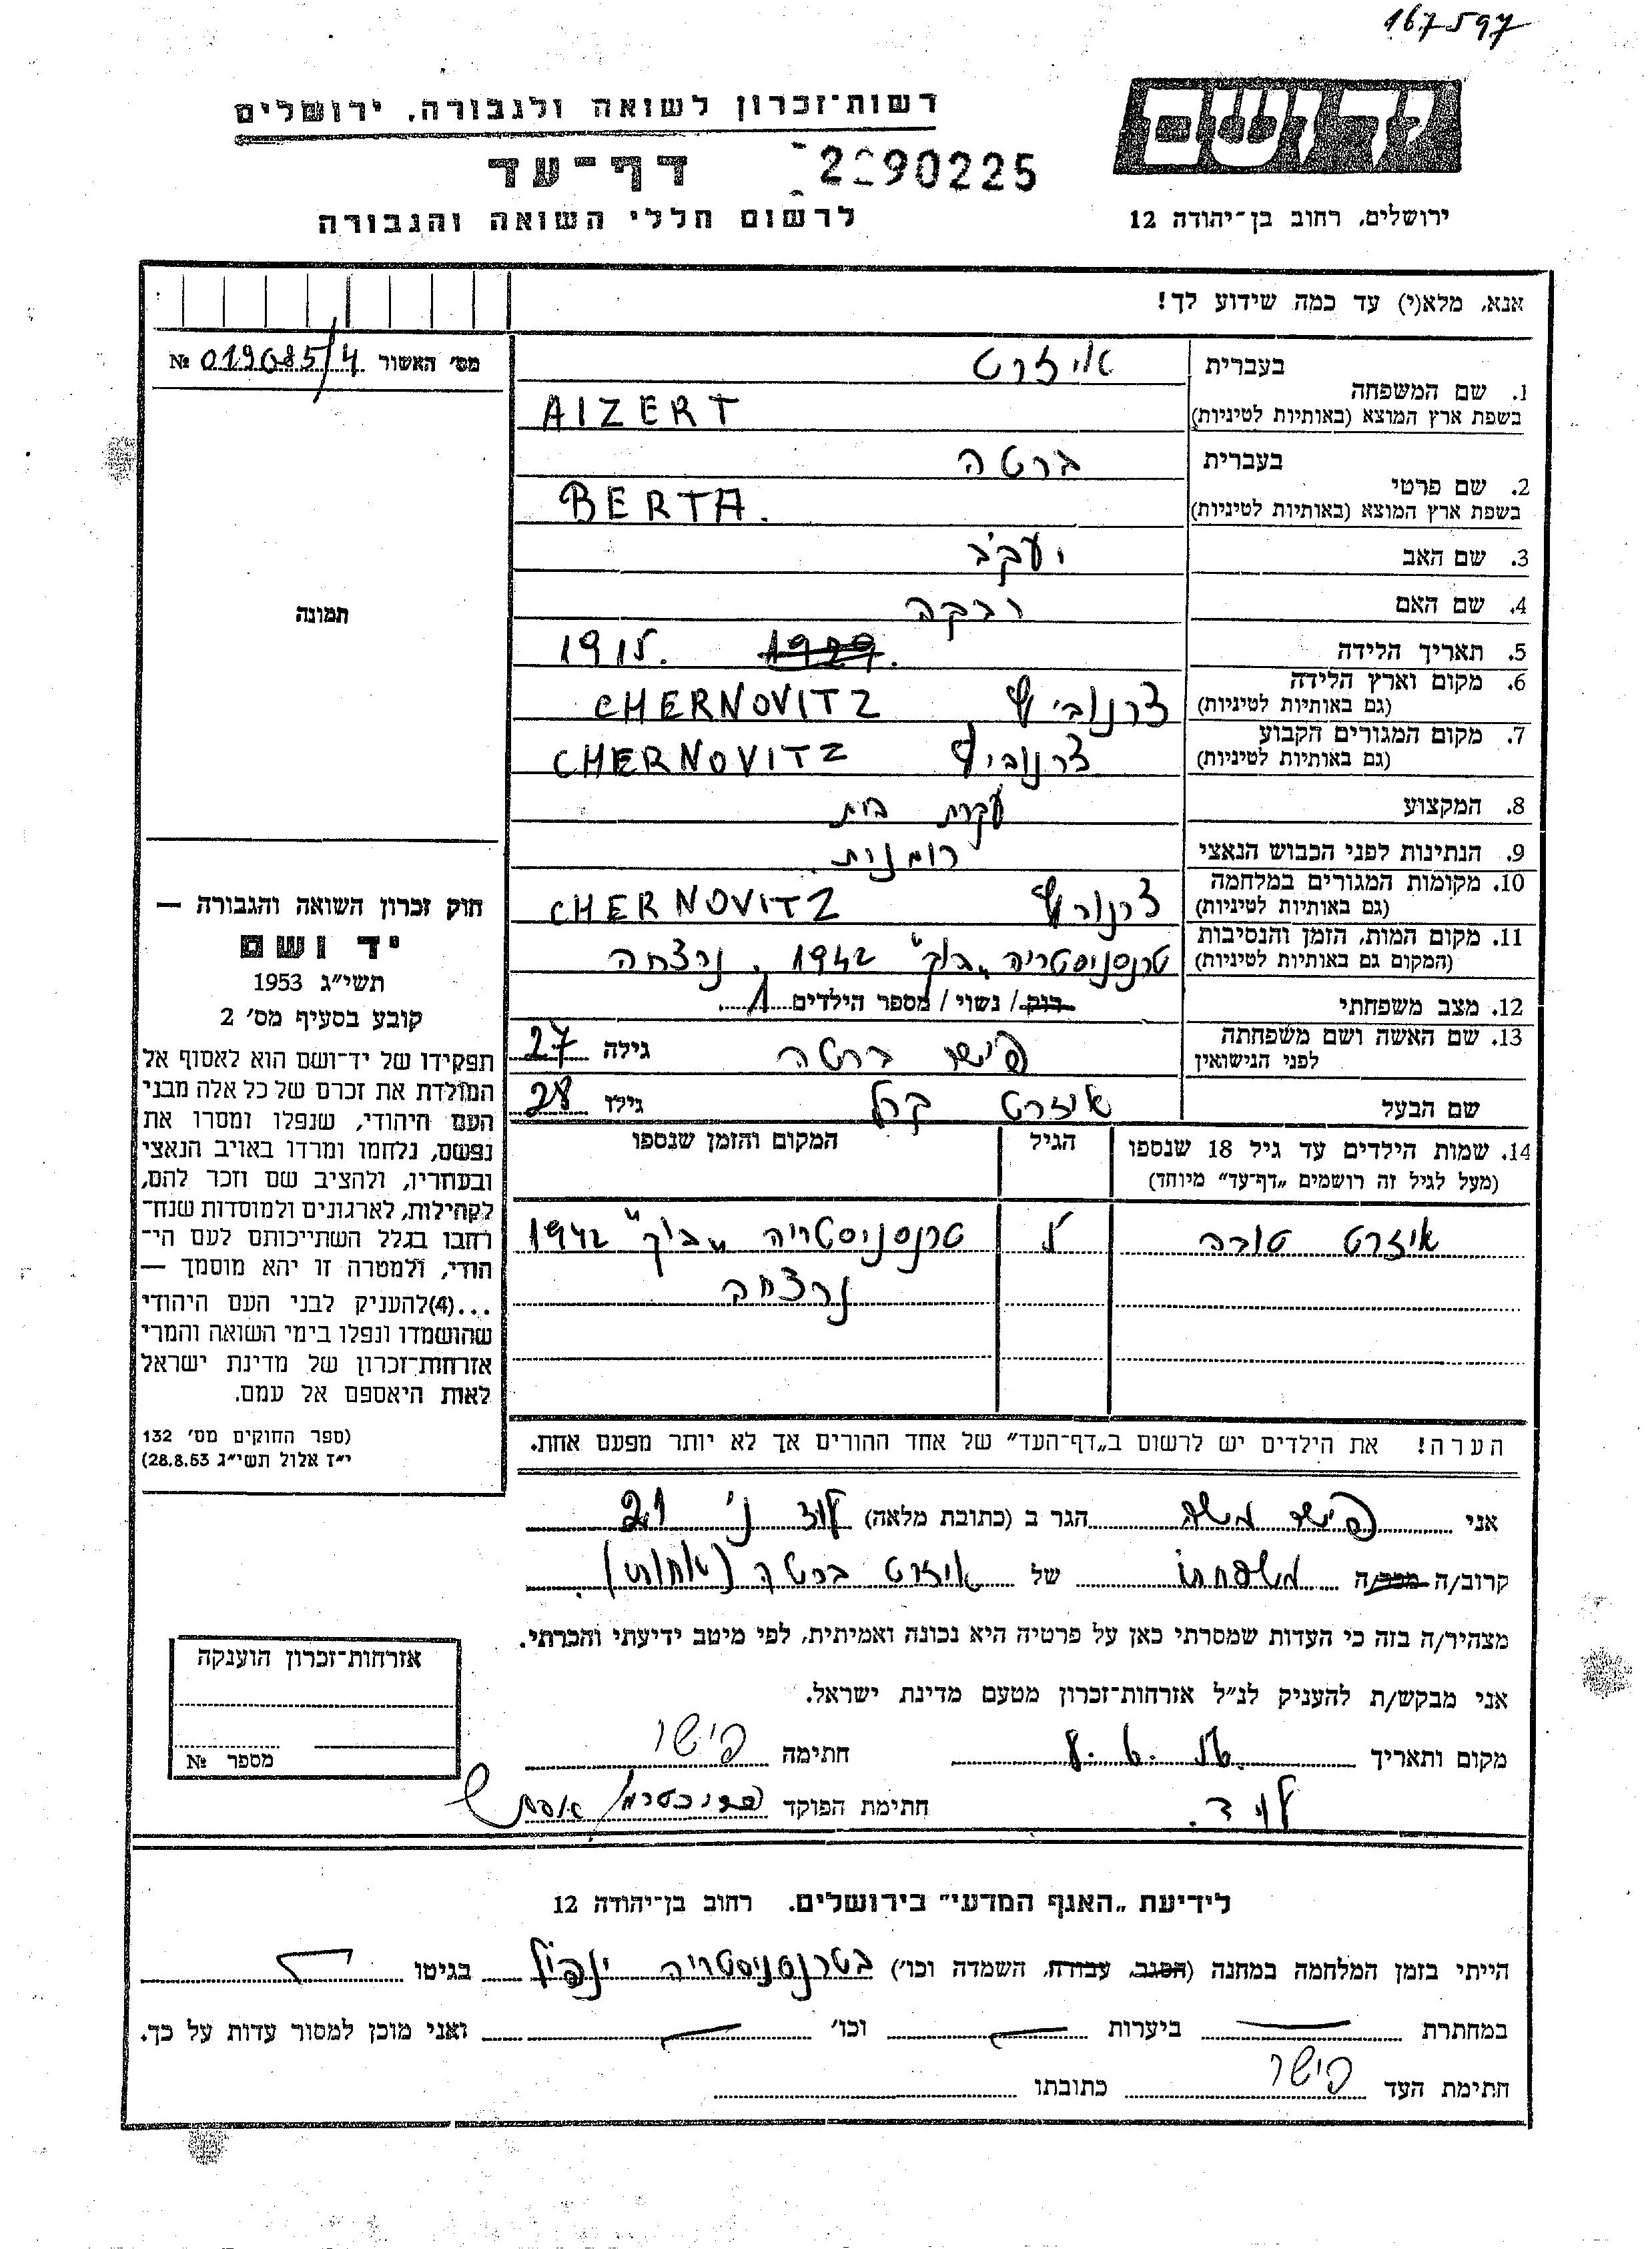 167597
רשות־זכרון לשואה ולגבורה, ירושלים
יד ושם
דף־עד
90225
לרשום חללי השואה והגבורה
ירושלים, רחוב בן־יהודה 12
אנא, מלא(י) עד כמה שידוע לך!
מס׳ האשור 019085/4 №
תמונה
חוק זכרון השואה והגבורה —
יד ושם
תשי״ג 1953
קובע בסעיף מס׳ 2
תפקידו של יד־ושם הוא לאסוף אל
המולדת את זכרם של כל אלה מבני
העם היהודי, שנפלו ומסרו את
נפשם, נלחמו ומרדו באויב הנאצי
ובעוזריו, ולהציב שם וזכר להם,
לקהילות, לארגונים ולמוסדות שנח־
רבו בגלל השתייכותם לעם הי־
הודי, ולמטרה זו יהא מוסמך —
...(4)להעניק לבני העם היהודי
שהושמדו ונפלו בימי השואה והמרי
אזרחות־זכרון של מדינת ישראל
לאות היאספם אל עמם.
(ספר החוקים מס׳ 132
י״ז אלול תשי״ג 28.8.53)
בעברית איזרט
1. שם המשפחה
בשפת ארץ המוצא (באותיות לטיניות) AIZERT
בעברית ברטה
2. שם פרטי
בשפת ארץ המוצא (באותיות לטיניות) BERTA.
3. שם האב יעקב
4. שם האם רבקה
5. תאריך הלידה 1929. 1915.
6. מקום וארץ הלידה
(גם באותיות לטיניות) צרנוביץ CHERNOVITZ
7. מקום המגורים הקבוע
(גם באותיות לטיניות) צרנוביץ CHERNOVITZ
8. המקצוע עקרת בית
9. הנתינות לפני הכבוש הנאצי רומנית
10. מקומות המגורים במלחמה
(גם באותיות לטיניות) CHERNOVITZ
11. מקום המות, הזמן והנסיבות
(המקום גם באותיות לטיניות) טרנסניסטריה „בוג״ 1942. נרצחה
12. מצב משפחתי רווק / נשוי / מספר הילדים 1
13. שם האשה ושם משפחתה
לפני הנישואין פישר ברטה גילה 27
שם הבעל איזרט קרל גילו 28
14. שמות הילדים עד גיל 18 שנספו הגיל המקום והזמן שנספו
(מעל לגיל זה רושמים „דף־עד״ מיוחד)
איזרט טובה 5 טרנסניסטריה „בוג״ 1942
נרצחה
הערה! את הילדים יש לרשום ב„דף־העד״ של אחד ההורים אך לא יותר מפעם אחת.
אני פישר משה הגר ב (כתובת מלאה) לוד נ׳ 21
קרוב/ה מכר/ה משפחתו של איזרט ברטה (אחותי).
מצהיר/ה בזה כי העדות שמסרתי כאן על פרטיה היא נכונה ואמיתית, לפי מיטב ידיעתי והכרתי.
אני מבקש/ת להעניק לנ״ל אזרחות־זכרון מטעם מדינת ישראל.
מקום ותאריך חתימה פישר
לוד. חתימת הפוקד
אזרחות־זכרון הוענקה
מספר №
לידיעת „האגף המדעי״ בירושלים. רחוב בן־יהודה 12
הייתי בזמן המלחמה במחנה (הסגר, עבודה, השמדה וכו׳) בטרנסניסטריה בגיטו
במחתרת ביערות וכו׳ ואני מוכן למסור עדות על כך.
חתימת העד פישר כתובתו